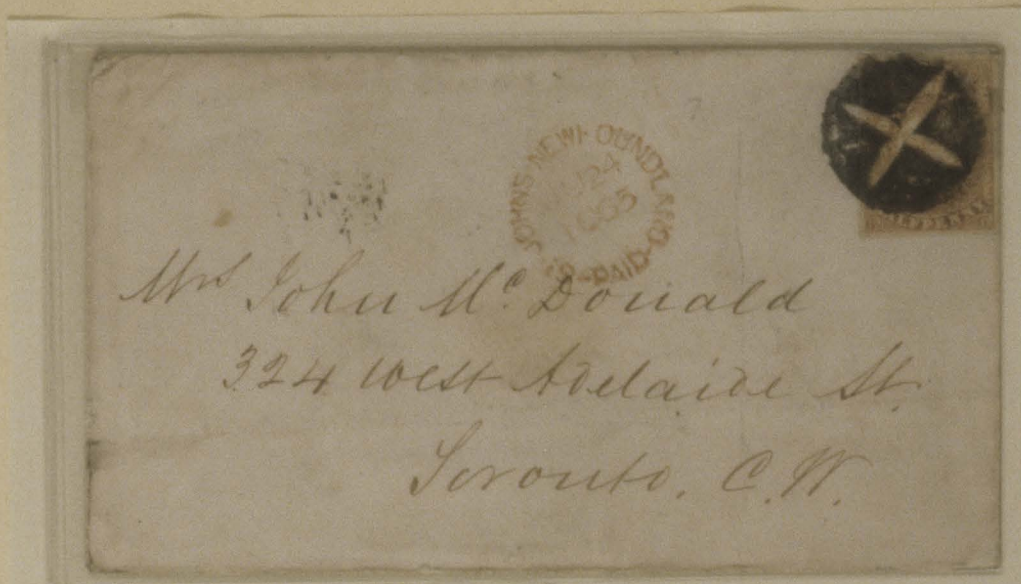 ST. JOHNS-NEWFOUNDLAND-
24
1865
PAID
Mrs John Mc. Donald
324 West Adelaide St.
Toronto. C. W.